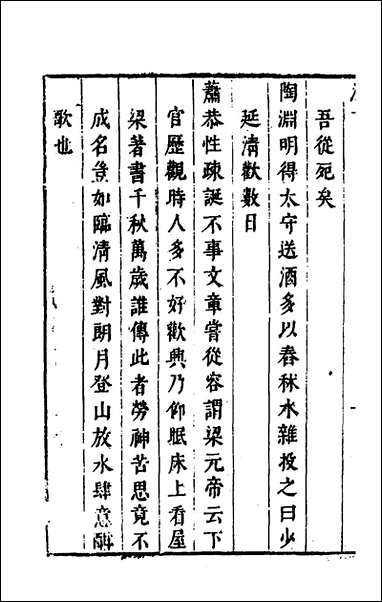 吾從死矣
陶淵明得太守送酒多以春秫水雜投之曰少
延清歡數日
蕭恭性疎誕不事文章嘗從容謂梁元帝云下
官歷觀時人多不好歡興乃仰眠床上看屋
梁著書千秋萬歲誰傳此者勞神苦思竟不
成名豈如臨清風對朗月登山放水肆意酣
歌也